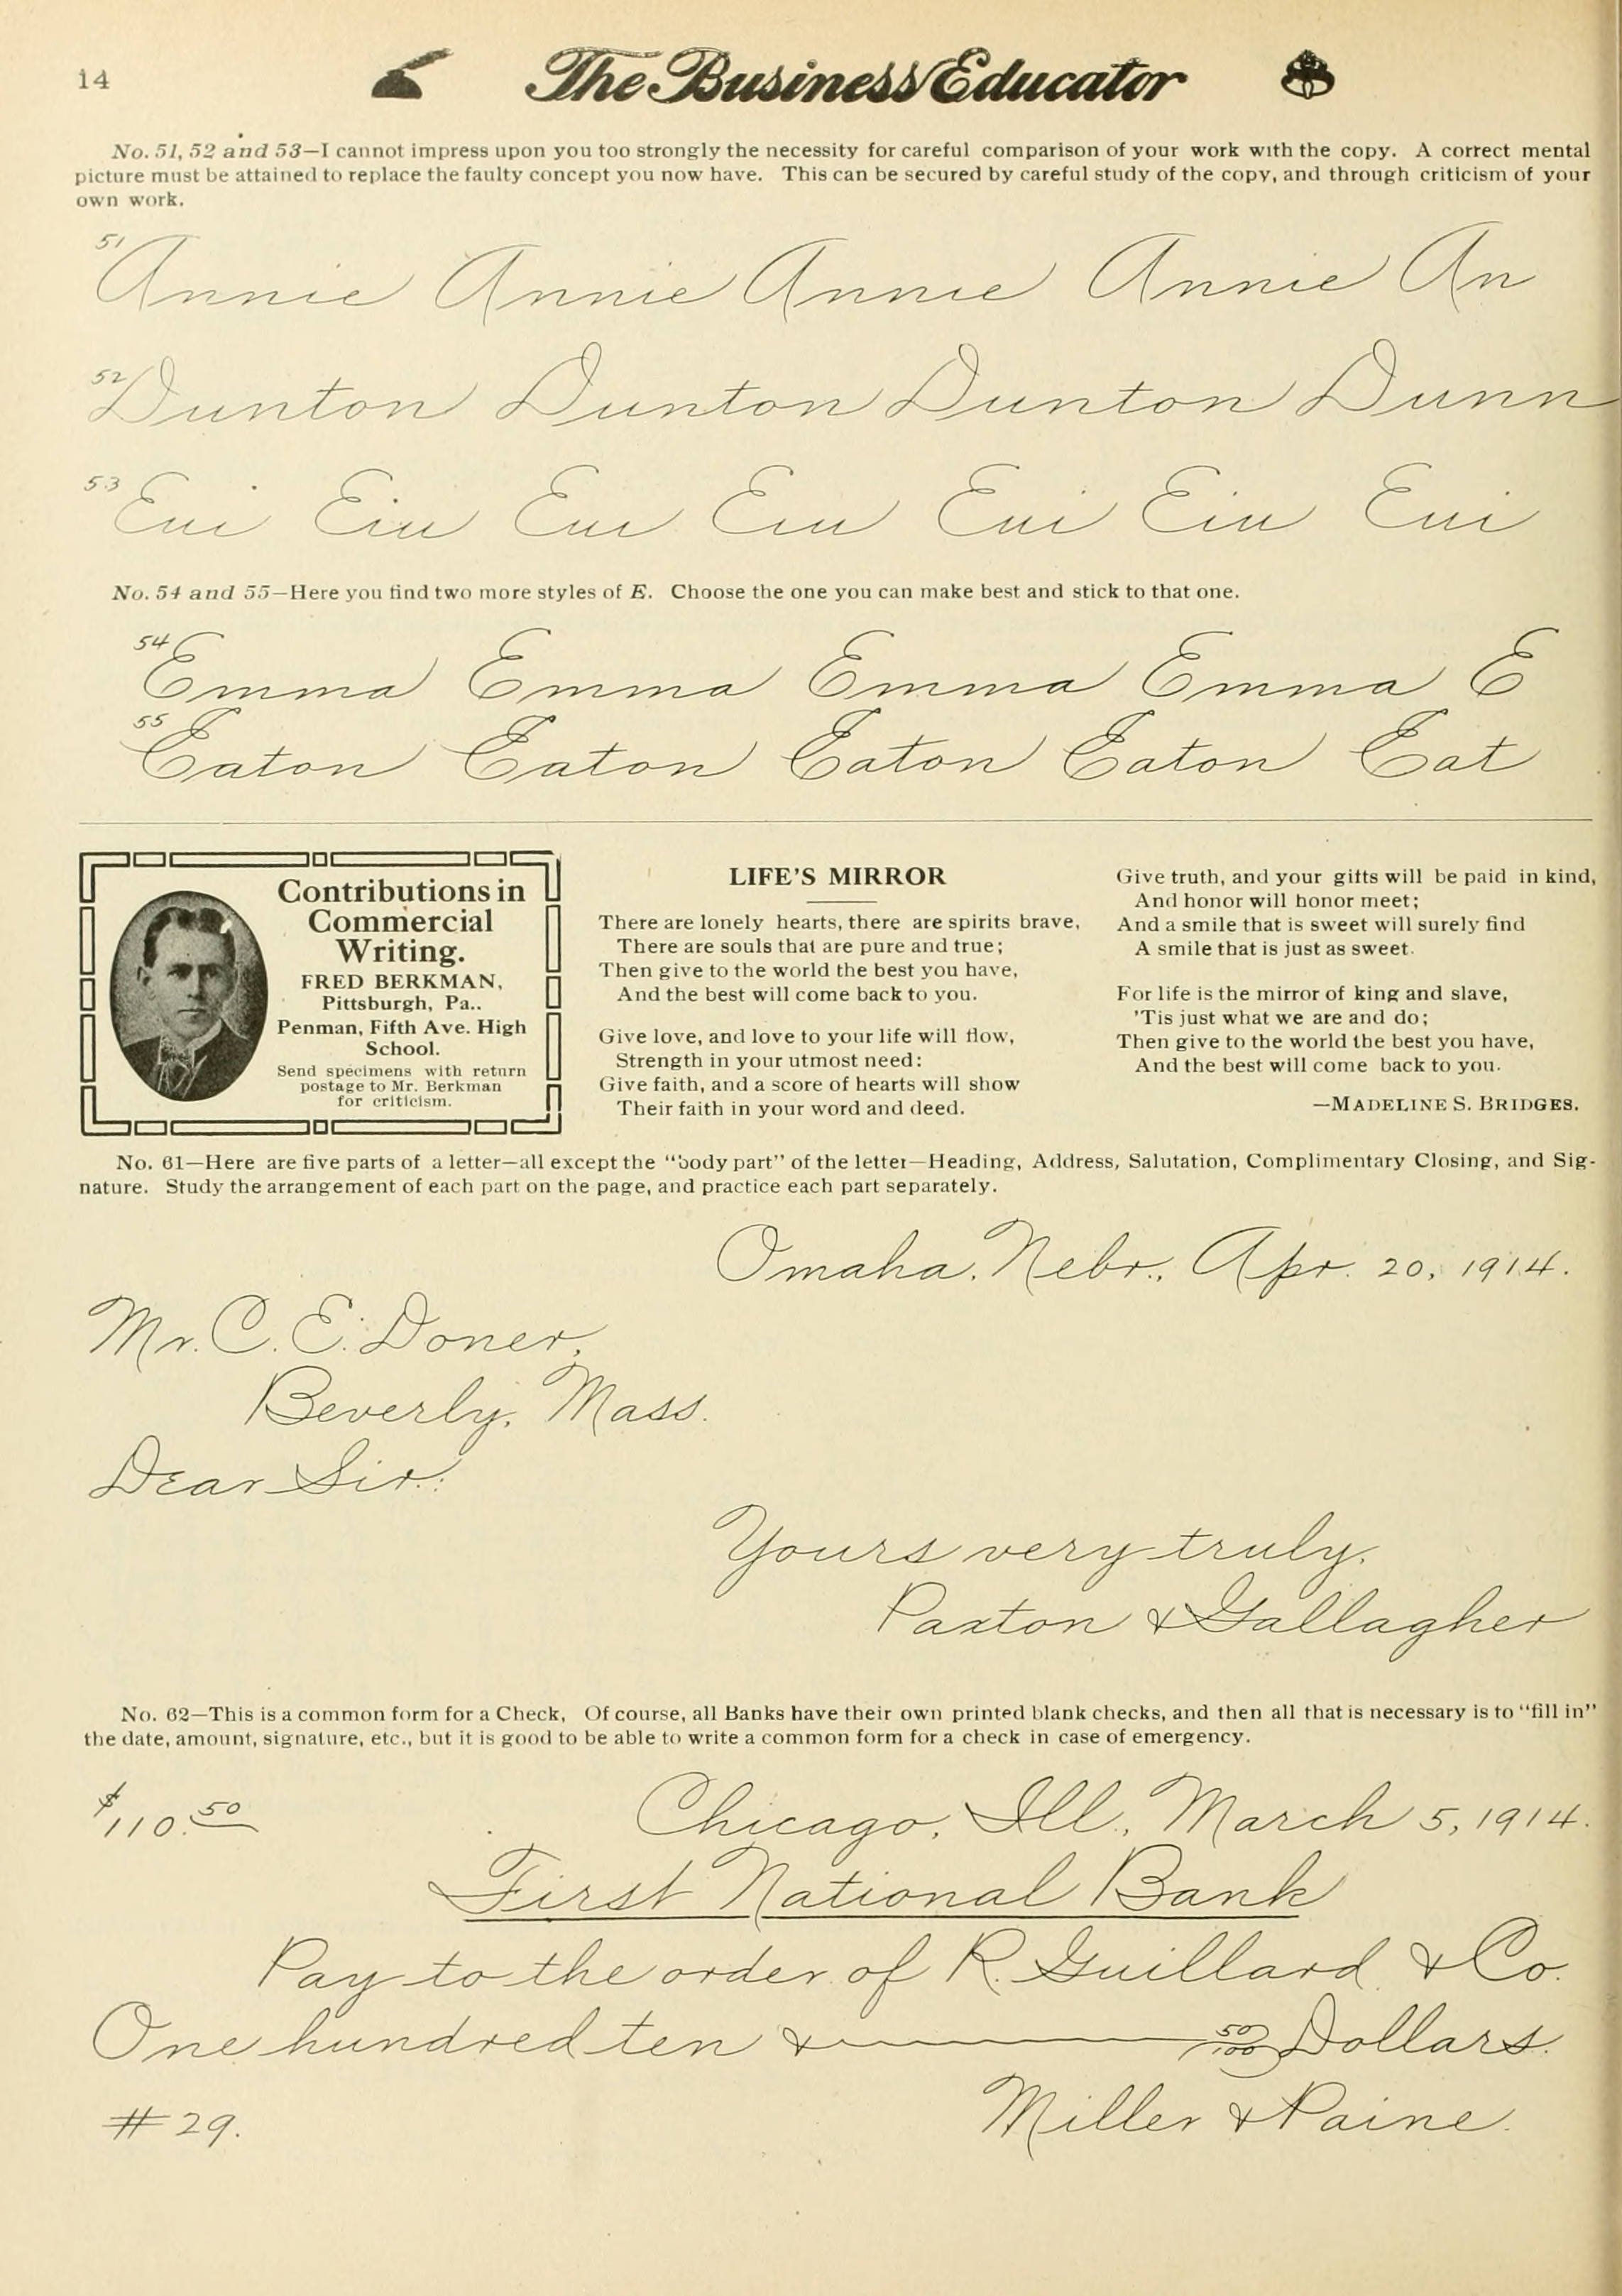 14
The Business Educator
No. 51, 52 and 53—I cannot impress upon you too strongly the necessity for careful comparison of your work with the copy. A correct mental
picture must be attained to replace the faulty concept you now have. This can be secured by careful study of the copy, and through criticism of your
own work.
51 Annie Annie Annie Annie An
52 Dunton Dunton Dunton Dunn
53 Eui Eiu Eui Eiu Eui Eiu Eui
No. 54 and 55—Here you find two more styles of E. Choose the one you can make best and stick to that one.
54 Emma Emma Emma Emma E
55 Eaton Eaton Eaton Eaton Eat
Contributions in
Commercial
Writing.
FRED BERKMAN,
Pittsburgh, Pa..
Penman, Fifth Ave. High
School.
Send specimens with return
postage to Mr. Berkman
for criticism.
LIFE'S MIRROR
There are lonely hearts, there are spirits brave,
There are souls that are pure and true;
Then give to the world the best you have,
And the best will come back to you.
Give love, and love to your life will flow,
Strength in your utmost need:
Give faith, and a score of hearts will show
Their faith in your word and deed.
Give truth, and your gifts will be paid in kind,
And honor will honor meet;
And a smile that is sweet will surely find
A smile that is just as sweet.
For life is the mirror of king and slave,
'Tis just what we are and do;
Then give to the world the best you have,
And the best will come back to you.
—MADELINE S. BRIDGES.
No. 61—Here are five parts of a letter—all except the "body part" of the letter—Heading, Address, Salutation, Complimentary Closing, and Sig-
nature. Study the arrangement of each part on the page, and practice each part separately.
Omaha, Nebr., Apr. 20, 1914.
Mr. C. E. Doner,
Beverly, Mass.
Dear Sir:
Yours very truly,
Paxton & Gallagher
No. 62—This is a common form for a Check, Of course, all Banks have their own printed blank checks, and then all that is necessary is to "fill in"
the date, amount, signature, etc., but it is good to be able to write a common form for a check in case of emergency.
$110.50 Chicago, Ill., March 5, 1914.
First National Bank
Pay to the order of R. Guillard & Co.
One hundred ten & 50/100 Dollars.
#29. Miller & Paine.